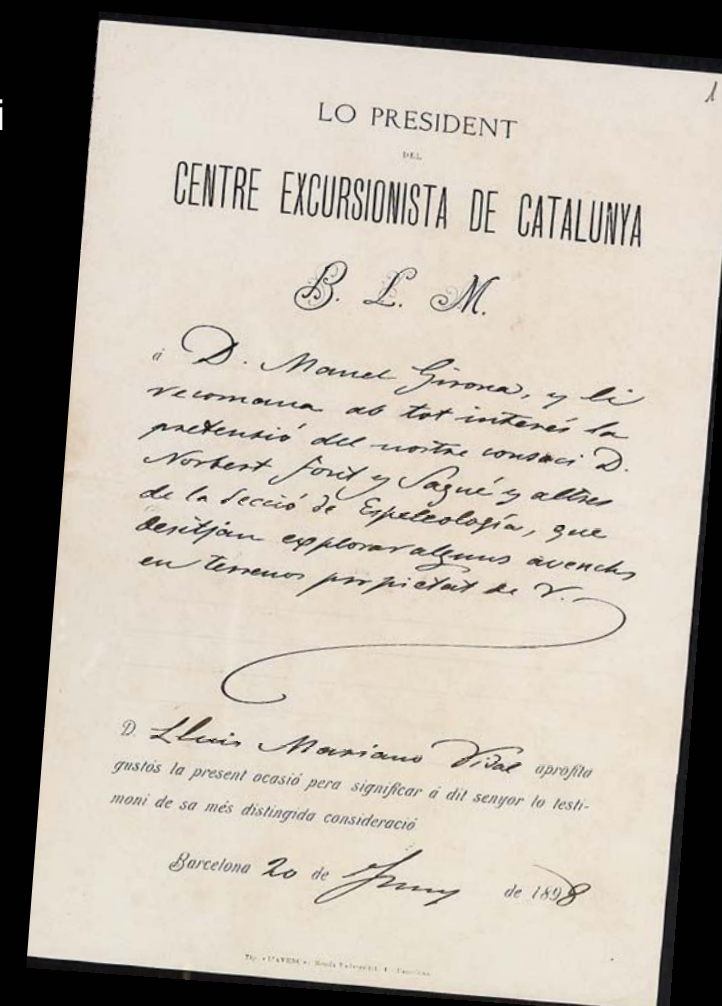 i
1
LO PRESIDENT
DEL
CENTRE EXCURSIONISTA DE CATALUNYA
B. L. M.
á D. Manel Girona, y li
recomana ab tot interés la
pretensió del nostre consoci D.
Norbert Font y Sagué y altres
de la Secció de Espeleología, que
desitjan explorar alguns avenchs
en terrenos propietat de V.
D. Lluis Mariano Vidal aprofita
gustós la present ocasió pera significar á dit senyor lo testi-
moni de sa més distingida consideració
Barcelona 20 de Juny de 1898
Tip. «L'AVENÇ»: Barcelona